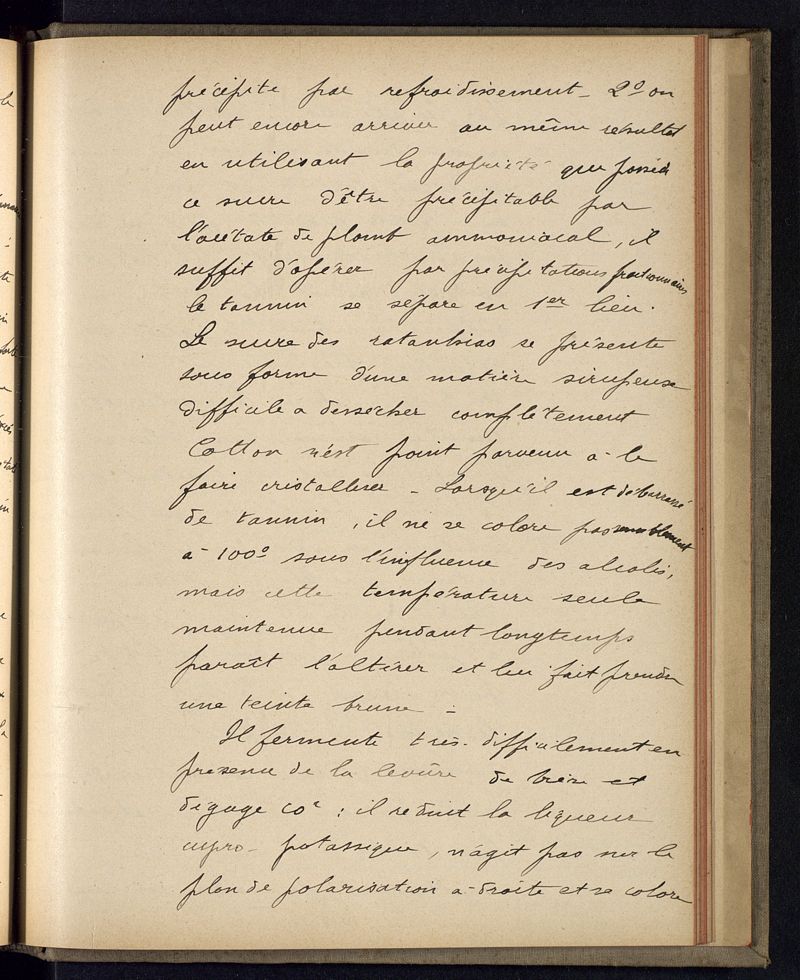 précipite par refroidissement – 2º on
peut encore arriver au même résultat
en utilisant la propriété que possède
ce sucre d'être précipitable par
l'acétate de plomb ammoniacal, il
suffit d'opérer par précipitations fractionnées
le tannin se sépare en 1er lieu.
Le sucre des ratanhias se présente
sous forme d'une matière sirupeuse
difficile a dessécher complètement
Cotton n'est point parvenu a le
faire cristalliser – Lorsqu'il est débarrassé
de tannin, il ne se colore pas sensiblement
a 100º sous l'influence des alcalis,
mais cette température seule
maintenue pendant longtemps
paraît l'altérer et lui fait prendre
une teinte brune –
Il fermente très-difficilement en
présence de la levûre de bière et
dégage CO² : il réduit la liqueur
cupro-potassique, n'agit pas sur le
plan de polarisation a droite et se colore